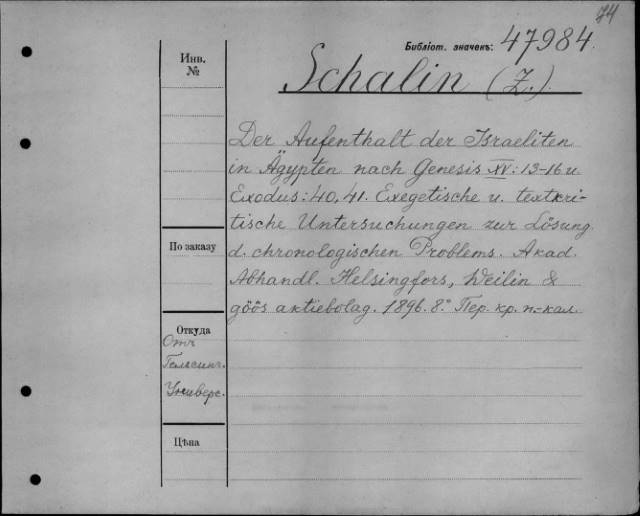 74
Библіот. значекъ: 47984.
Инв.
№
Schalin (Z.)
Der Aufenthalt der Israeliten
in Ägypten nach Genesis XV: 13-16 u.
Exodus: 40, 41. Exegetische u. textkri-
tische Untersuchungen zur Lösung
d. chronologischen Problems. Akad.
Abhandl. Helsingfors, Weilin &
göös aktiebolag. 1896. 8.° Пер. кр. п.-кал.
По заказу
Откуда
Отъ
Гельсинг.
Универс.
Цѣна